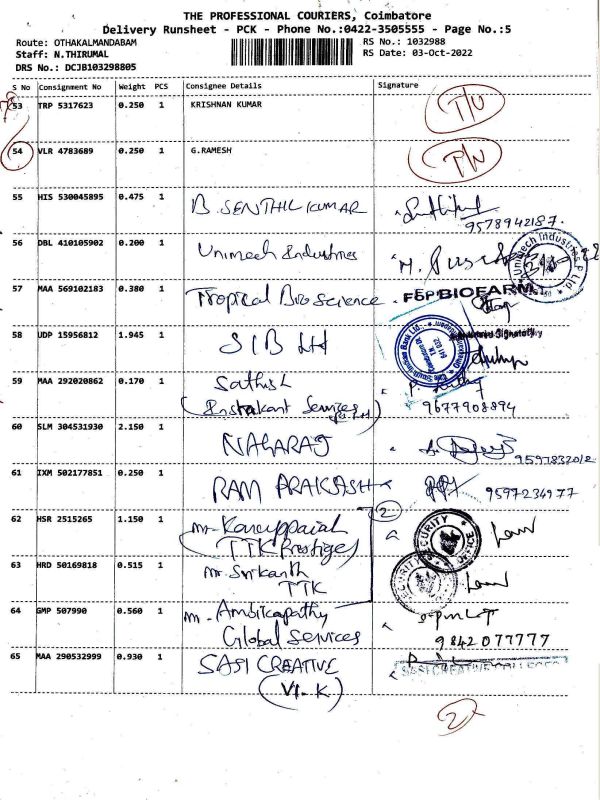 THE PROFESSIONAL COURIERS, Coimbatore
Delivery Runsheet - PCK - Phone No.:0422-3505555 - Page No.:5
Route: OTHAKALMANDABAM
RS No.: 1032988
Staff: N.THIRUMAL
RS Date: 03-Oct-2022
DRS No.: DCJB103298805
S No Consignment No Weight PCS Consignee Details Signature
53 TRP 5317623 0.250 1 KRISHNAN KUMAR
54 VLR 4783689 0.250 1 G.RAMESH
55 HIS 530045895 0.475 1 B. SENTHIL KUMAR
9578942187.
56 DBL 410105902 0.200 1 Unimech Industries
Unimech Industries P Ltd
57 MAA 569102183 0.380 1 Tropical Bio science F&P BIOFARM
58 UDP 15956812 1.945 1 SIB Ltd
Authorised Signatory
59 MAA 292020862 0.170 1 Sathish
(Instakart Services 9677908894
60 SLM 304531930 2.150 1 NAGARAJ
9597832012
61 IXM 502177851 0.250 1 RAM PRAKASH 9597234977
62 HSR 2515265 1.150 1 Mr. Karuppaiah 2
(TTK Prestige) SECURITY OFFICE
63 HRD 50169818 0.515 1 Mr. Srikanth
TTK SECURITY
64 GMP 507990 0.560 1 M. Ambikapathy
Global Services 9842077777
65 MAA 290532999 0.930 1 SASI CREATIVE SASI CREATIVE COLLEGE
(VI. K)